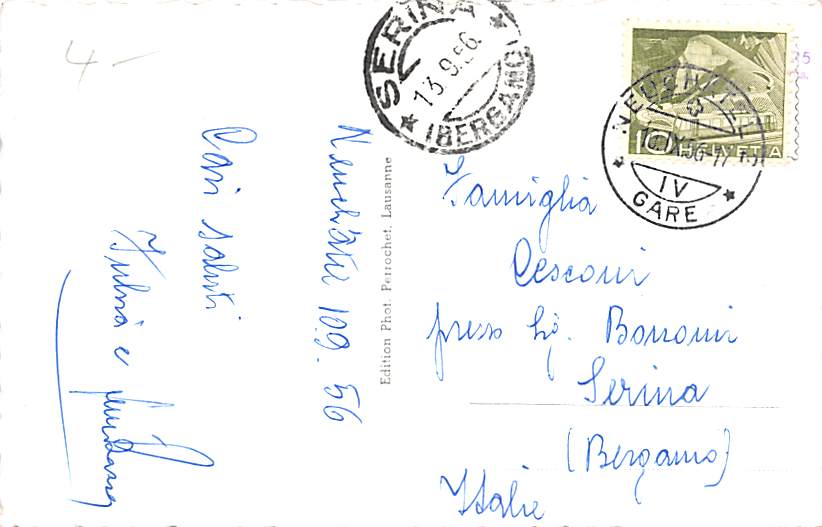 4-
SERINA
13.9.56
(BERGAMO)
NEUCHÂTEL
10.IX.56-17
IV
GARE
10 HELVETIA
Neuchâtel 10.9.56
Cari saluti
e
Edition Phot. Perrochet, Lausanne
Famiglia
presso Sig. Bonomi
Serina
(Bergamo)
Italie